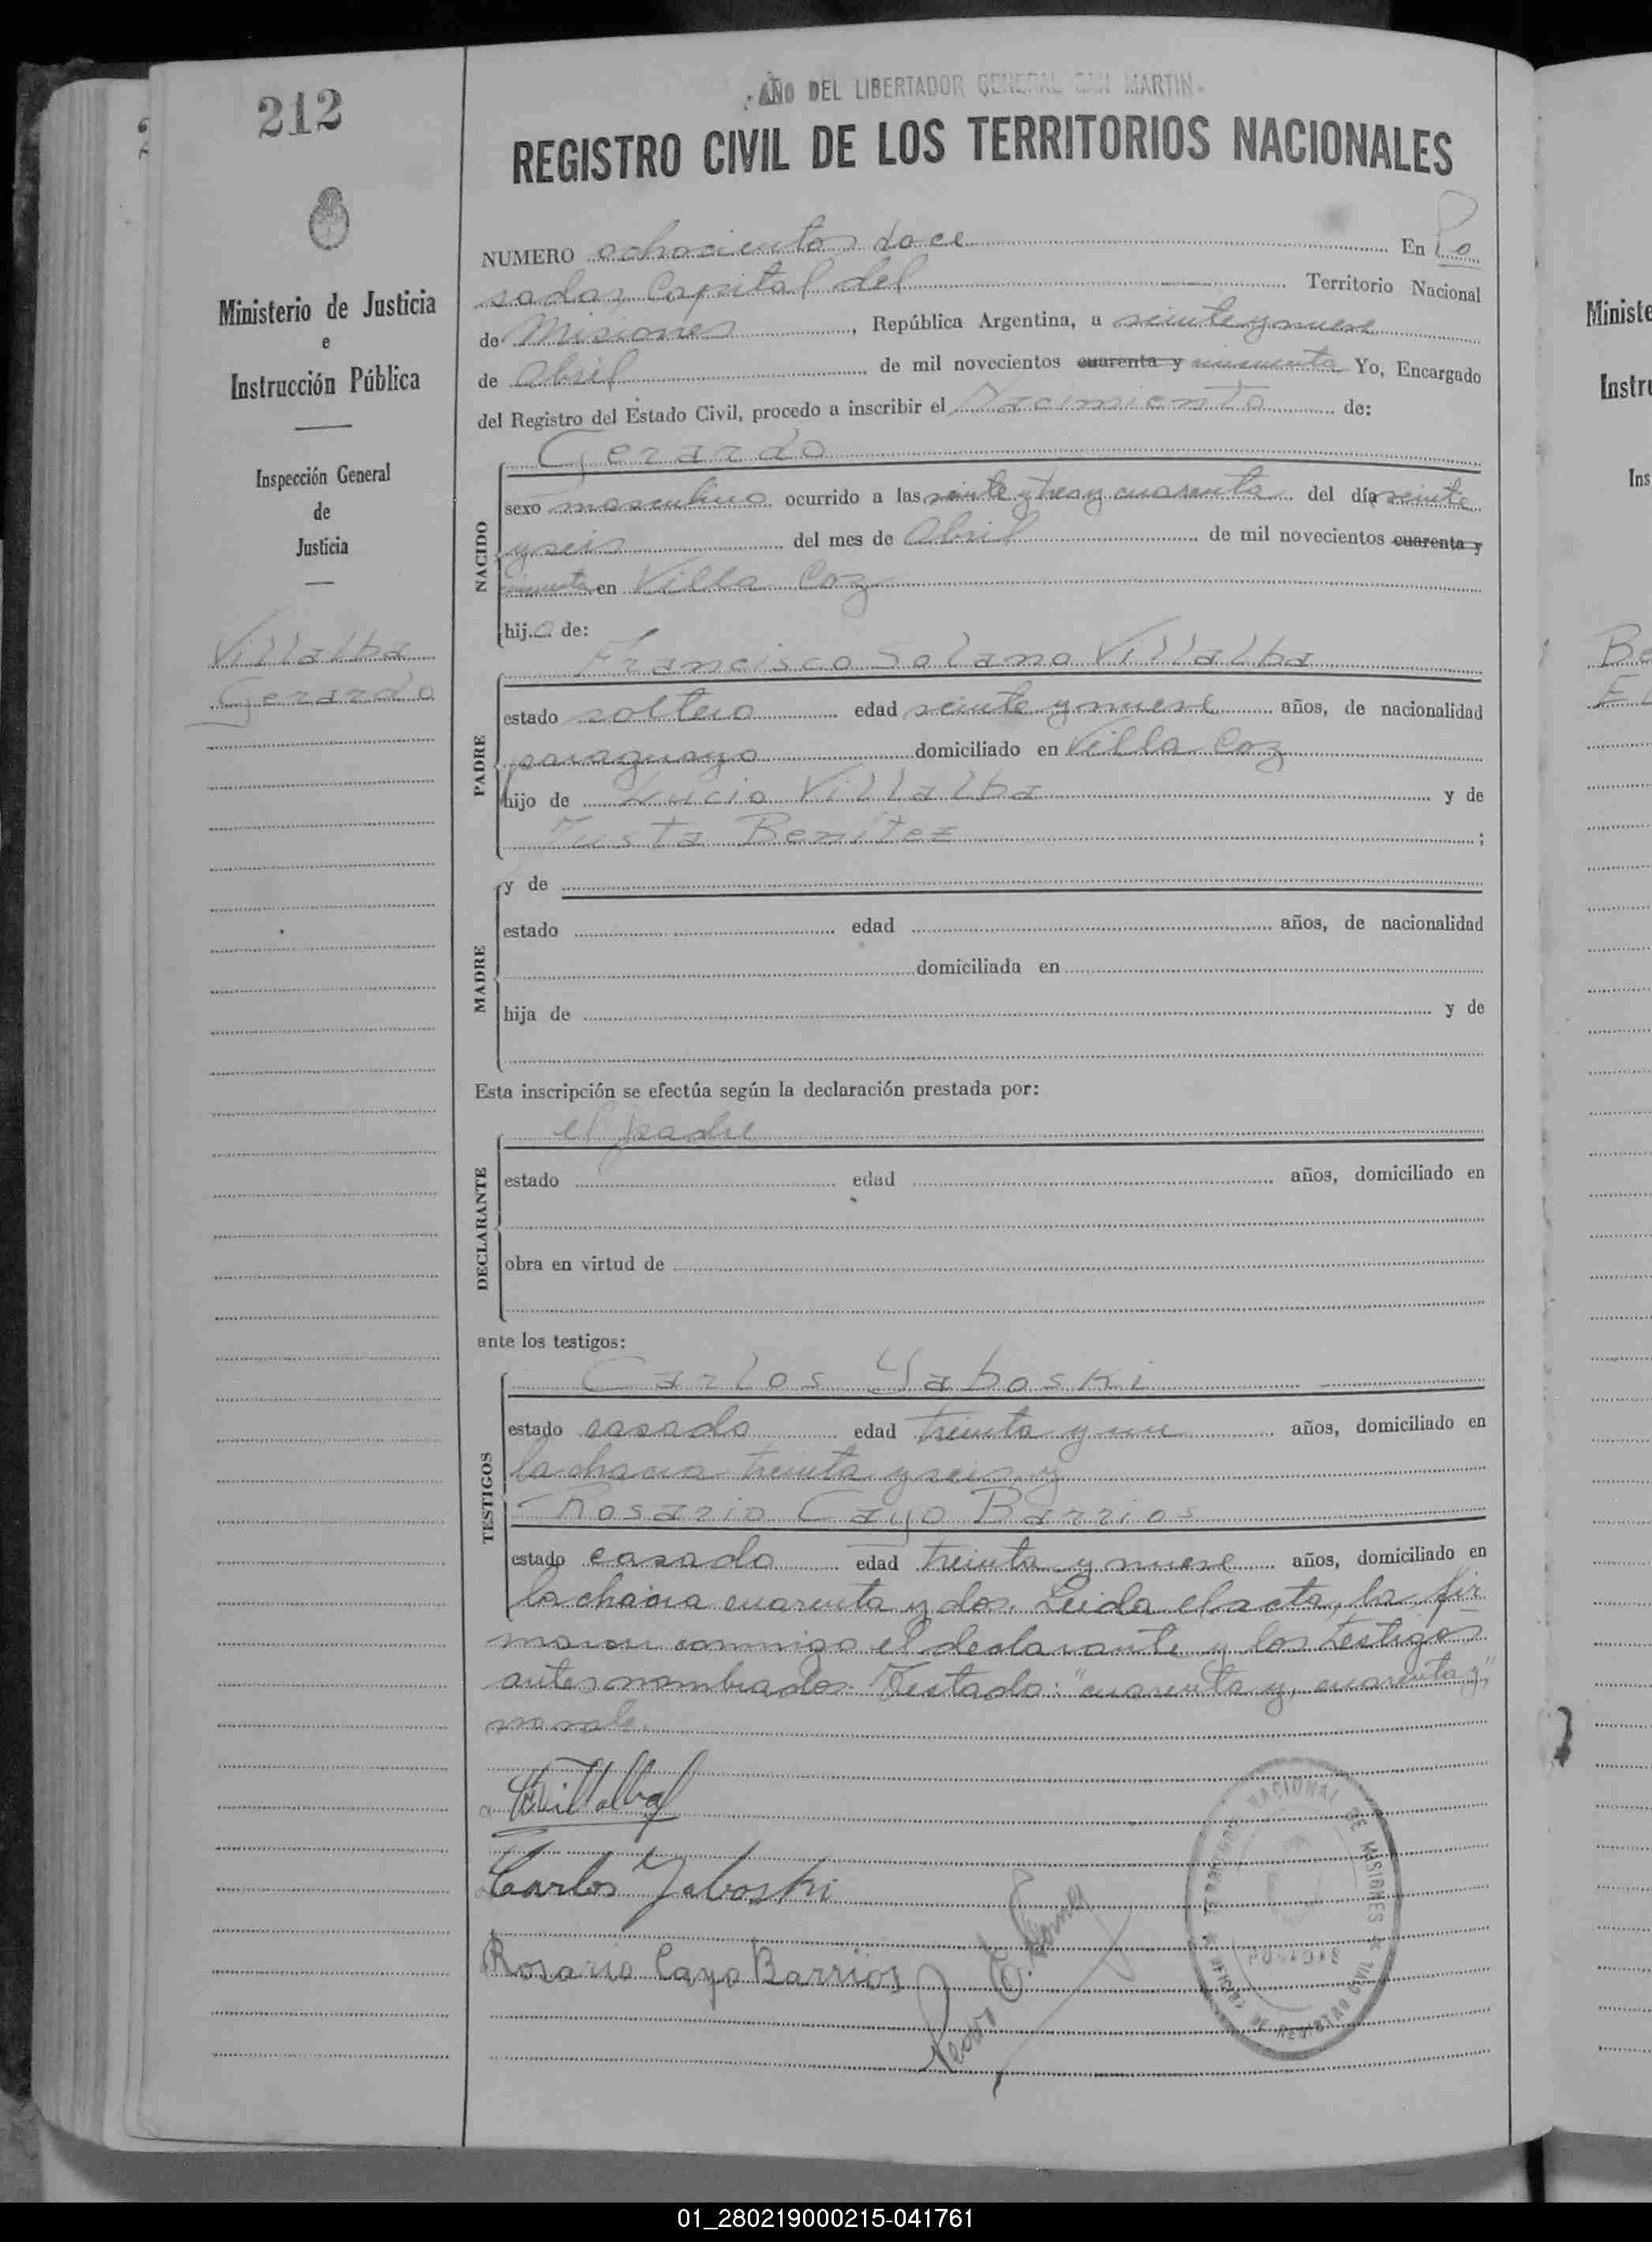 212
AÑO DEL LIBERTADOR GENERAL SAN MARTIN
REGISTRO CIVIL DE LOS TERRITORIOS NACIONALES
Ministerio de Justicia
e
Instrucción Pública
Inspección General
de
Justicia
Villalba
Gerardo
NUMERO ochocientos doce En Po
sadas Capital del Territorio Nacional
de Misiones, República Argentina, a veinte y nueve
de Abril de mil novecientos cuarenta y cincuenta Yo, Encargado
del Registro del Estado Civil, procedo a inscribir el Nacimiento de:
NACIDO
Gerardo
sexo masculino ocurrido a las veinte y tres y cuarenta del día veinte
y seis del mes de Abril de mil novecientos cuarenta y
cincuenta en Villa Coz
hijo de:
PADRE
Francisco Solano Villalba
estado soltero edad veinte y nueve años, de nacionalidad
paraguayo domiciliado en Villa Coz
hijo de Lucio Villalba y de
Justa Benitez ;
MADRE
y de
estado edad años, de nacionalidad
domiciliada en
hija de y de
Esta inscripción se efectúa según la declaración prestada por:
DECLARANTE
el padre
estado edad años, domiciliado en
obra en virtud de
ante los testigos:
TESTIGOS
Carlos Yaboski
estado casado edad treinta y un años, domiciliado en
la chacra treinta y seis y
Rosario Cayo Barrios
estado casado edad treinta y nueve años, domiciliado en
la chacra cuarenta y dos. Leida el acta, la fir
maron conmigo el declarante y los testigos
antes nombrados. Testado: "cuarenta y, cuarenta y,"
no vale.
Villalba
Carlos Yaboski
Rosario Cayo Barrios
NACIONAL DE MISIONES
POSADAS
OFICINA DE REGISTRO CIVIL
Ministe
Instru
Ins
Be
01_280219000215-041761